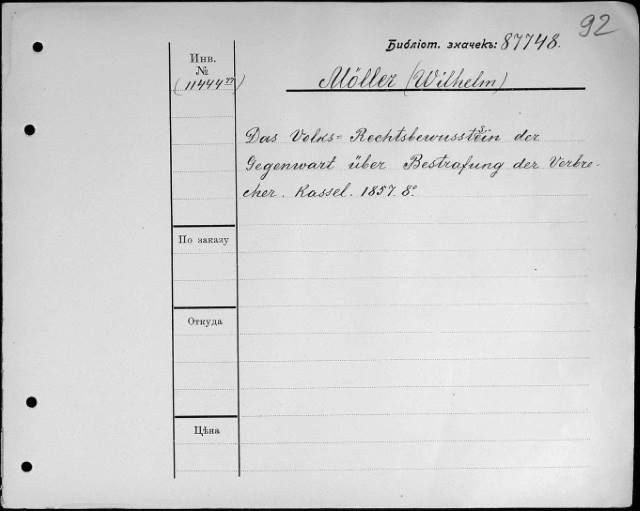 92
Библіот. значекъ: 87748.
Инв.
№
(11444 77)
Möller (Wilhelm)
Das Volks= Rechtsbewusstsein der
Gegenwart über Bestrafung der Verbre-
cher. Kassel. 1857. 8°
По заказу
Откуда
Цѣна